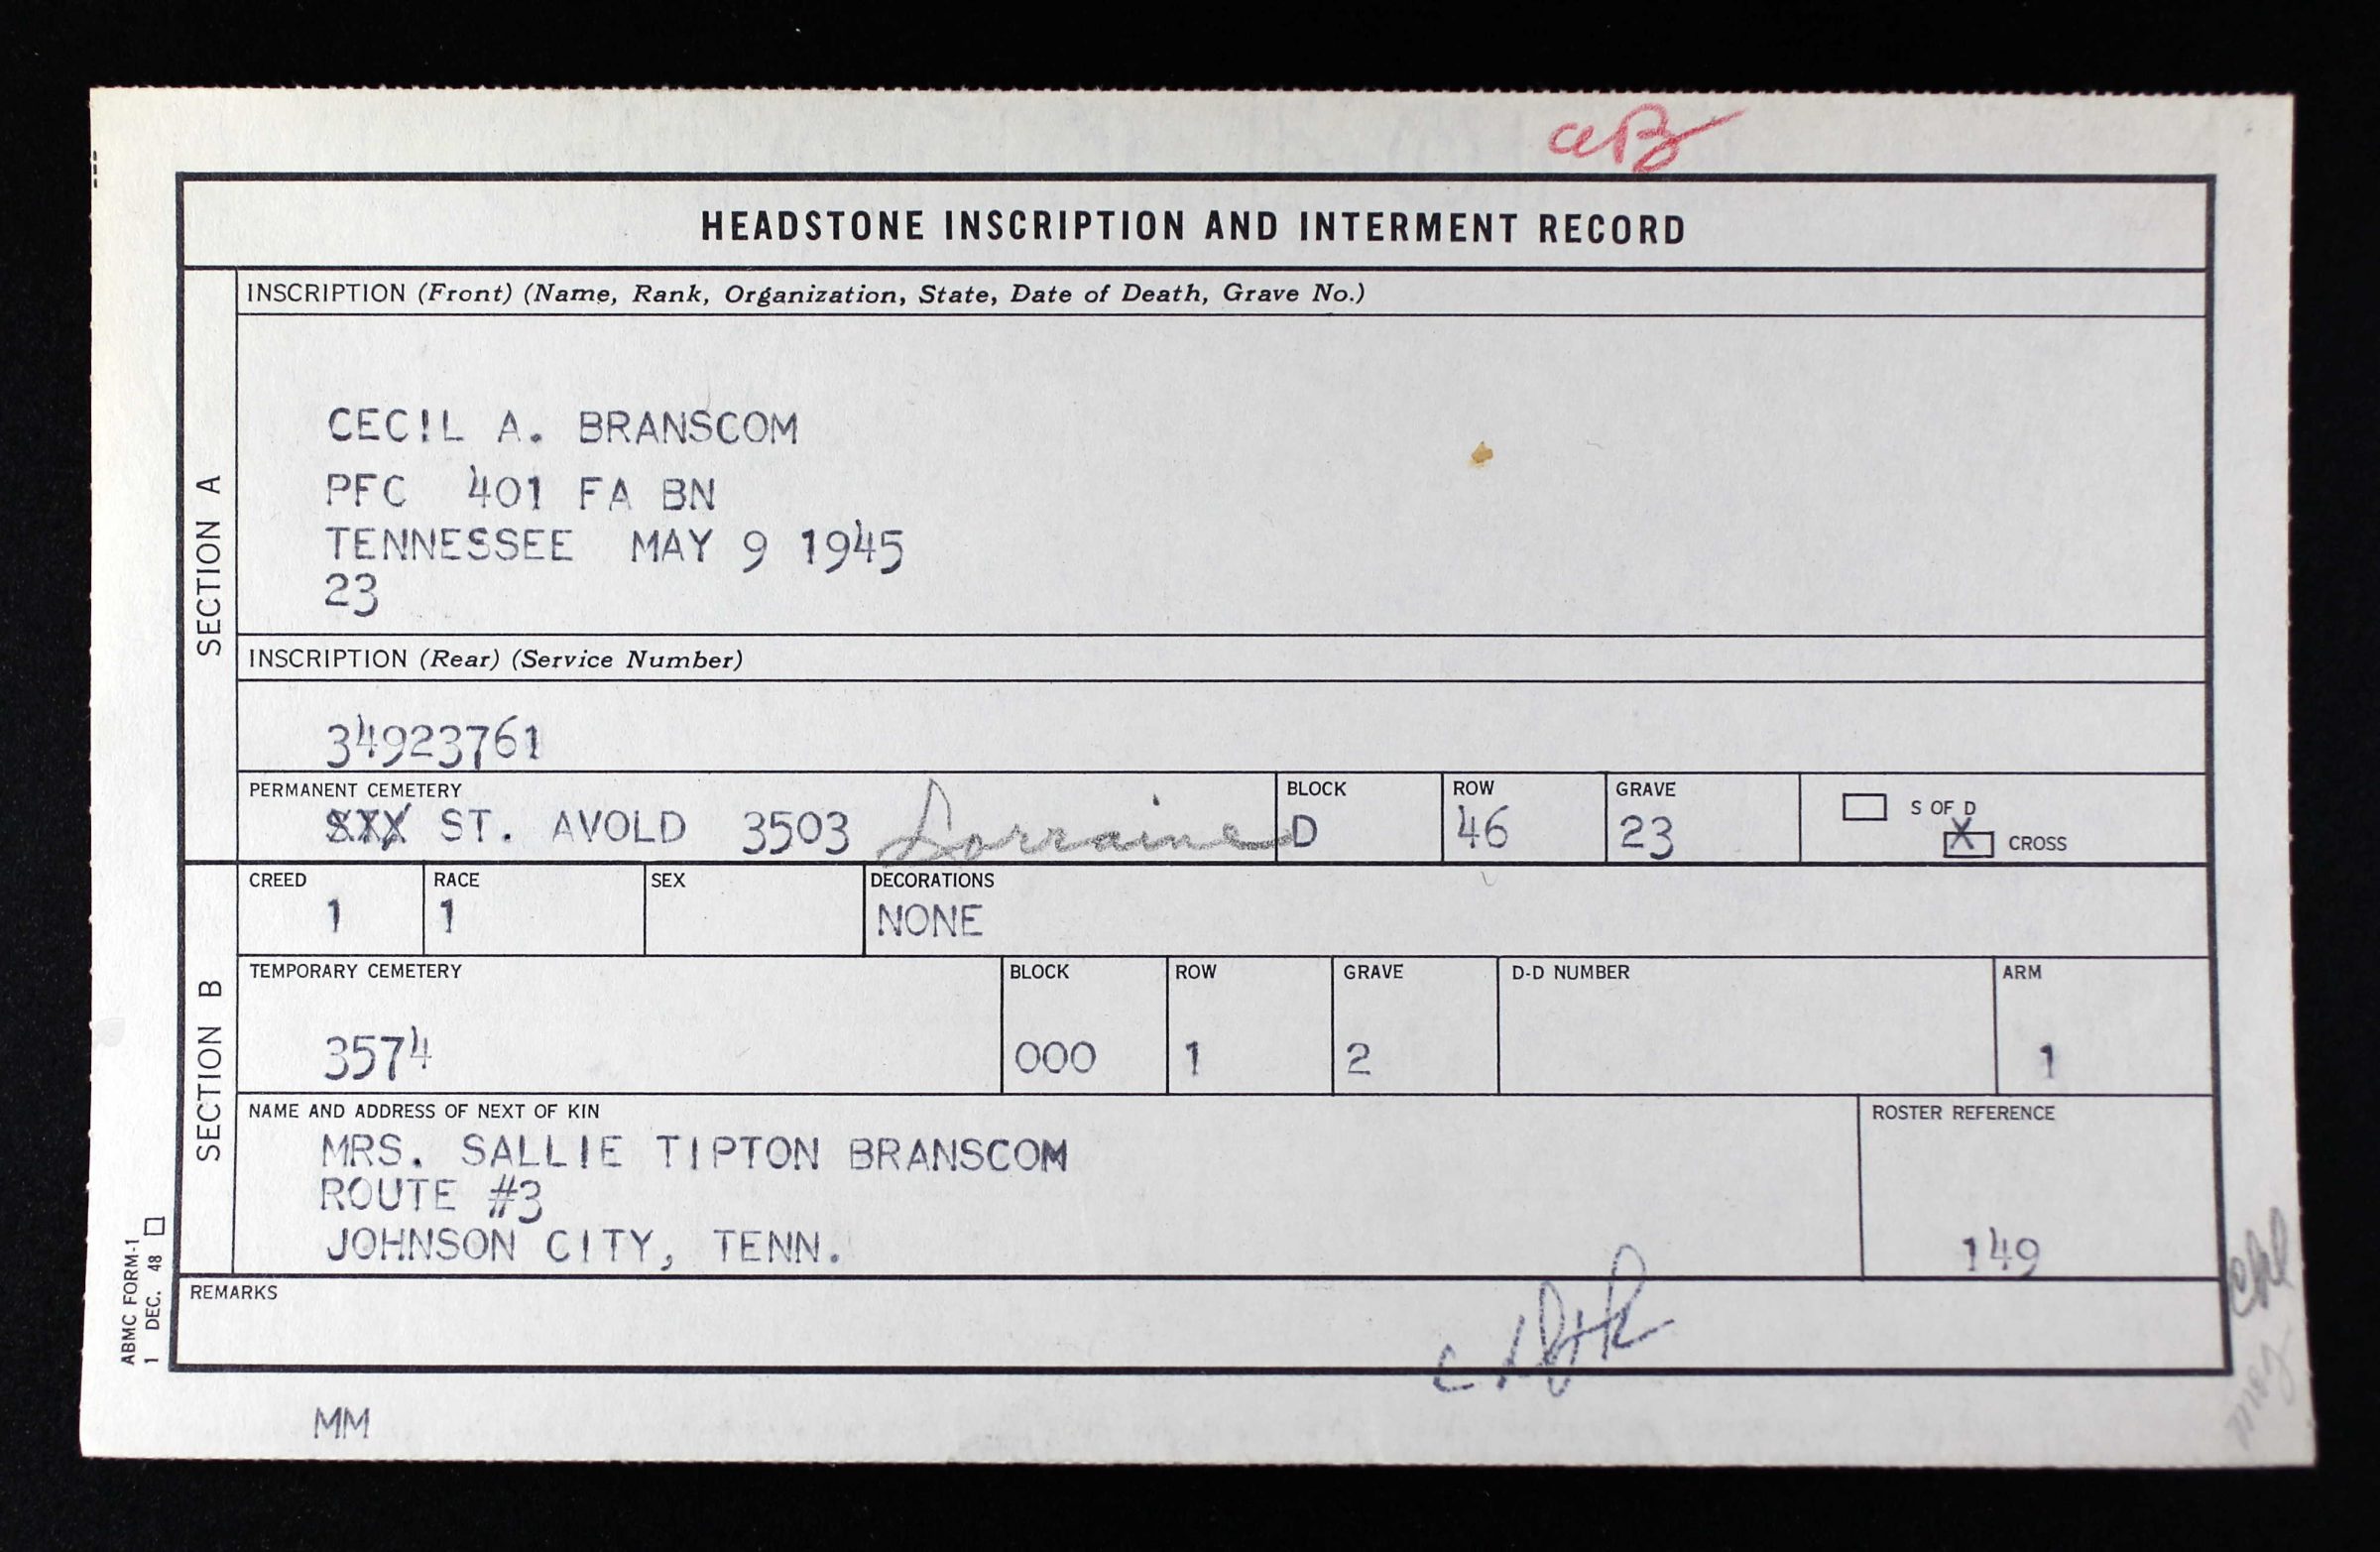 aB
HEADSTONE INSCRIPTION AND INTERMENT RECORD
SECTION A
INSCRIPTION (Front) (Name, Rank, Organization, State, Date of Death, Grave No.)
CECIL A. BRANSCOM
PFC 401 FA BN
TENNESSEE MAY 9 1945
23
INSCRIPTION (Rear) (Service Number)
34923761
PERMANENT CEMETERY
ST. AVOLD 3503 Lorraine
BLOCK
D
ROW
46
GRAVE
23
S OF D
X CROSS
SECTION B
CREED
1
RACE
1
SEX
DECORATIONS
NONE
TEMPORARY CEMETERY
3574
BLOCK
000
ROW
1
GRAVE
2
D-D NUMBER
ARM
1
NAME AND ADDRESS OF NEXT OF KIN
MRS. SALLIE TIPTON BRANSCOM
ROUTE #3
JOHNSON CITY, TENN.
ROSTER REFERENCE
149
REMARKS
ABMC FORM-1
1 DEC. 48
MM